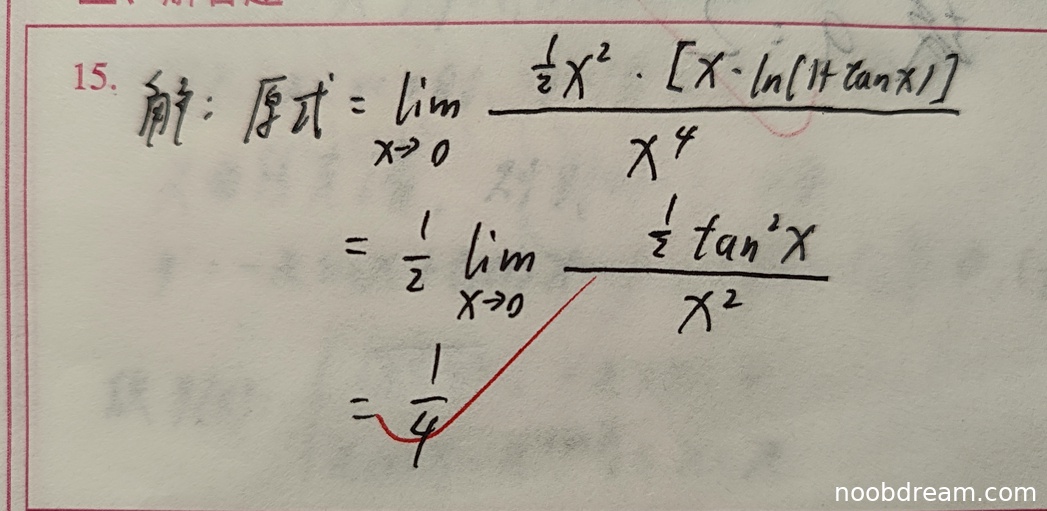 15. 解: 原式 = lim x→0 ½x² · [x - ln(1+tanx)] / x⁴
= 1/2 lim x→0 ½ tan²x / x²
= 1/4
noobdream.com